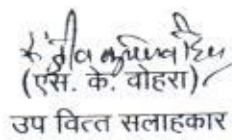 (एस. के. वोहरा)
उप वित्त सलाहकार